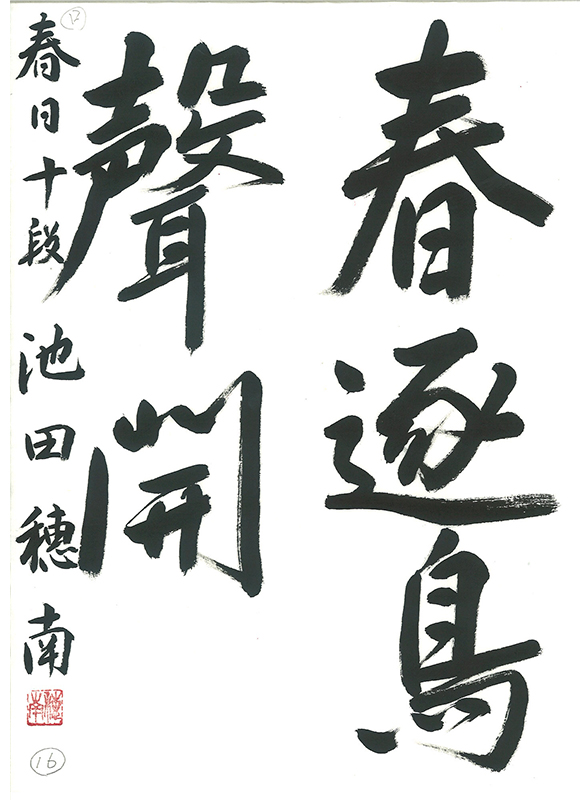 春逐鳥
聲開
春日十段 池田穂南
穂南
16